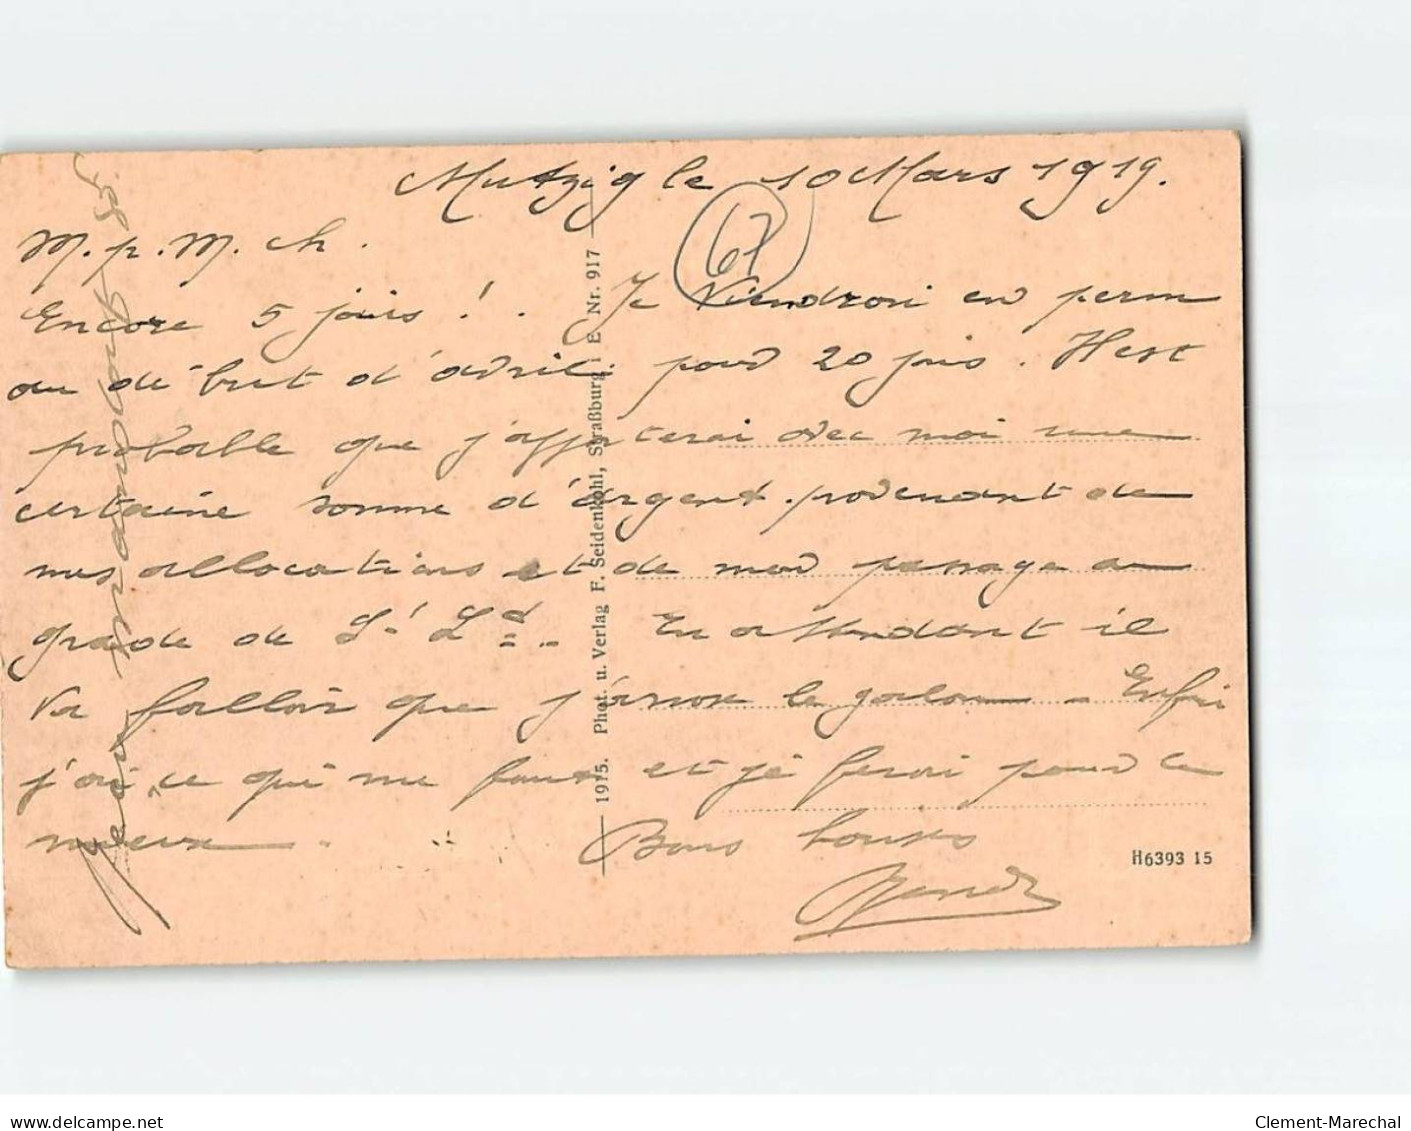 Mutzig le 10 Mars 1919.
67
M. p. M. ch.
Encore 5 jours ! . Je viendrai en perm
au début d'avril pour 20 jours. Il est
probable que j'apporterai avec moi une
certaine somme d'argent provenant de
mes allocations et de mon passage au
grade de S. Lt. En attendant il
va falloir que j'arrose le galon - Enfin
j'ai ce qui me faut et je ferai pour le
mieux.
Bons baisers
1915. Phot. u. Verlag F. Seidenkohl, Straßburg i E. Nr. 917
H6393 15
www.delcampe.net
Clement-Marechal